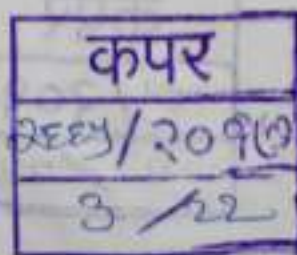 कपर
२६६५/२०१७
3/22